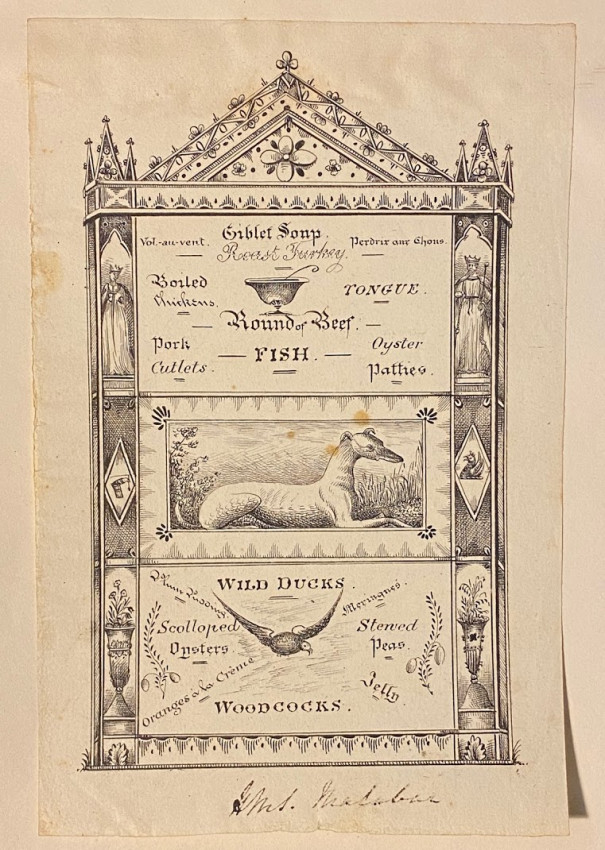 Giblet Soup.
Vol.-au-vent. Roast Turkey. Perdrix aux Choux.
Boiled Chickens.
TONGUE.
Round of Beef.
Pork Cutlets.
FISH.
Oyster Patties.
WILD DUCKS.
Plum Pudding.
Meringues.
Scolloped Oysters
Stewed Peas.
Oranges a la Crème
Jelly.
WOODCOCKS.
H.M.S. Malabar